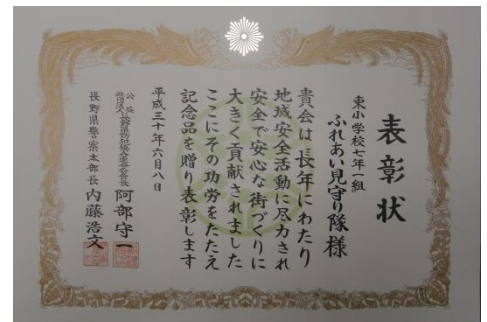 表彰状
東小学校七年一組
ふれあい見守り隊様
貴会は長年にわたり
地域安全活動に尽力され
安全で安心な街づくりに
大きく貢献されました
ここにその功労をたたえ
記念品を贈り表彰します
平成三十年六月八日
公益社団法人長野県防犯協会連合会会長 阿部守一
長野県警察本部長 内藤浩文